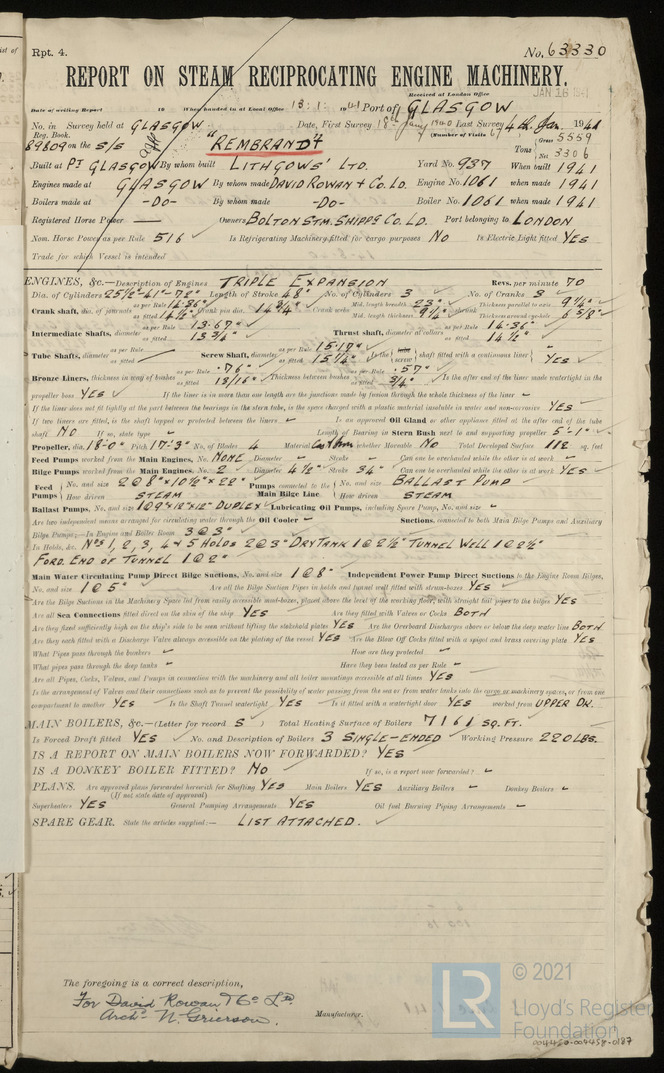 Rpt. 4.
No. 63330
REPORT ON STEAM RECIPROCATING ENGINE MACHINERY.
Received at London Office JAN 16 1941
Date of writing Report 19 When handed in at Local Office 13.1.1941 Port of GLASGOW
No. in Survey held at GLASGOW Date, First Survey 18th Last Survey 4th Jan. 1941
Reg. Book. (Number of Visits
89809 on the S/S "REMBRANDT" Tons Gross 5559 Net 3306
Built at PT GLASGOW By whom built LITHGOWS' LTD. Yard No. 937 When built 1941
Engines made at GLASGOW By whom made DAVID ROWAN & CO. LD. Engine No. 1061 when made 1941
Boilers made at -DO- By whom made -DO- Boiler No. 1061 when made 1941
Registered Horse Power — Owners BOLTON STM. SHIPPG CO. LD. Port belonging to LONDON
Nom. Horse Power as per Rule 516 Is Refrigerating Machinery fitted for cargo purposes NO Is Electric Light fitted YES
Trade for which Vessel is intended
ENGINES, &c.—Description of Engines TRIPLE EXPANSION Revs. per minute 70
Dia. of Cylinders 25½"-41"-72" Length of Stroke 48" No. of Cylinders 3 No. of Cranks 3
Crank shaft, dia. of journals as per Rule 14.36" as fitted 14½" Crank pin dia. 14¾" Crank webs Mid. length breadth 23" Mid. length thickness 9¼" shrunk Thickness parallel to axis 9¼" Thickness around eye-hole 6 5/8"
Intermediate Shafts, diameter as per Rule 13.67" as fitted 13¾" Thrust shaft, diameter at collars as per Rule 14.36" as fitted 14½"
Tube Shafts, diameter as per Rule as fitted Screw Shaft, diameter as per Rule 15.17" as fitted 15¼" Is the screw shaft fitted with a continuous liner YES
Bronze Liners, thickness in way of bushes as per Rule .76" as fitted 13/16" Thickness between bushes as per Rule .57" as fitted ¾" Is the after end of the liner made watertight in the
propeller boss YES If the liner is in more than one length are the junctions made by fusion through the whole thickness of the liner –
If the liner does not fit tightly at the part between the bearings in the stern tube, is the space charged with a plastic material insoluble in water and non-corrosive YES
If two liners are fitted, is the shaft lapped or protected between the liners – Is an approved Oil Gland or other appliance fitted at the after end of the tube
shaft NO If so, state type – Length of Bearing in Stern Bush next to and supporting propeller 5'-1"
Propeller, dia. 18'-0" Pitch 17'-3" No. of Blades 4 Material whether Moveable NO Total Developed Surface 112 sq. feet
Feed Pumps worked from the Main Engines, No. NONE Diameter – Stroke – Can one be overhauled while the other is at work –
Bilge Pumps worked from the Main Engines, No. 2 Diameter 4½" Stroke 34" Can one be overhauled while the other is at work YES
Feed Pumps No. and size 2 @ 8" x 10½" x 22" How driven STEAM Pumps connected to the Main Bilge Line No. and size BALLAST PUMP How driven STEAM
Ballast Pumps, No. and size 1 @ 9" x 12" x 12" DUPLEX Lubricating Oil Pumps, including Spare Pump, No. and size –
Are two independent means arranged for circulating water through the Oil Cooler – Suctions, connected to both Main Bilge Pumps and Auxiliary
Bilge Pumps:—In Engine and Boiler Room 3 @ 3"
In Holds, &c. Nos 1, 2, 3, 4 & 5 HOLDS 2 @ 3" DRY TANK 1 @ 2½" TUNNEL WELL 1 @ 2½"
FORD. END OF TUNNEL 1 @ 2"
Main Water Circulating Pump Direct Bilge Suctions, No. and size 1 @ 8" Independent Power Pump Direct Suctions to the Engine Room Bilges,
No. and size 1 @ 5" Are all the Bilge Suction Pipes in holds and tunnel well fitted with strum-boxes YES
Are the Bilge Suctions in the Machinery Space led from easily accessible mud-boxes, placed above the level of the working floor, with straight tail pipes to the bilges YES
Are all Sea Connections fitted direct on the skin of the ship YES Are they fitted with Valves or Cocks BOTH
Are they fixed sufficiently high on the ship's side to be seen without lifting the stokehold plates YES Are the Overboard Discharges above or below the deep water line BOTH
Are they each fitted with a Discharge Valve always accessible on the plating of the vessel YES Are the Blow Off Cocks fitted with a spigot and brass covering plate YES
What Pipes pass through the bunkers – How are they protected –
What pipes pass through the deep tanks – Have they been tested as per Rule –
Are all Pipes, Cocks, Valves, and Pumps in connection with the machinery and all boiler mountings accessible at all times YES
Is the arrangement of Valves and their connections such as to prevent the possibility of water passing from the sea or from water tanks into the cargo or machinery spaces, or from one
compartment to another YES Is the Shaft Tunnel watertight YES Is it fitted with a watertight door YES worked from UPPER DK.
MAIN BOILERS, &c.—(Letter for record S) Total Heating Surface of Boilers 7161 SQ. FT.
Is Forced Draft fitted YES No. and Description of Boilers 3 SINGLE-ENDED Working Pressure 220 LBS.
IS A REPORT ON MAIN BOILERS NOW FORWARDED? YES
IS A DONKEY BOILER FITTED? NO If so, is a report now forwarded? –
PLANS. Are approved plans forwarded herewith for Shafting YES Main Boilers YES Auxiliary Boilers – Donkey Boilers –
(If not state date of approval)
Superheaters YES General Pumping Arrangements YES Oil fuel Burning Piping Arrangements –
SPARE GEAR. State the articles supplied:— LIST ATTACHED.
The foregoing is a correct description,
For David Rowan & Co Ld
Archd N. Grierson. Manufacturer.
LR
© 2021
Lloyd's Register
Foundation
004450-004458-0187